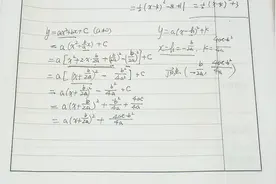 = ½(x-k)² - k+1 = ½(x-k)² + 3
y = ax²+bx+c (a≠0)
= a(x²+\frac{b}{a}x)+c
= a[x²+2·x·\frac{b}{2a}+(\frac{b}{2a})²-(\frac{b}{2a})²]+c
= a[(x+\frac{b}{2a})² - \frac{b²}{4a²}]+c
= a(x+\frac{b}{2a})² - \frac{b²}{4a}+c
= a(x+\frac{b}{2a})² - \frac{b²}{4a}+\frac{4ac}{4a}
= a(x+\frac{b}{2a})² + \frac{4ac-b²}{4a}
y=a(x-h)²+k
x=h=-\frac{b}{2a}, k=\frac{4ac-b²}{4a}
顶点(-\frac{b}{2a}, \frac{4ac-b²}{4a})